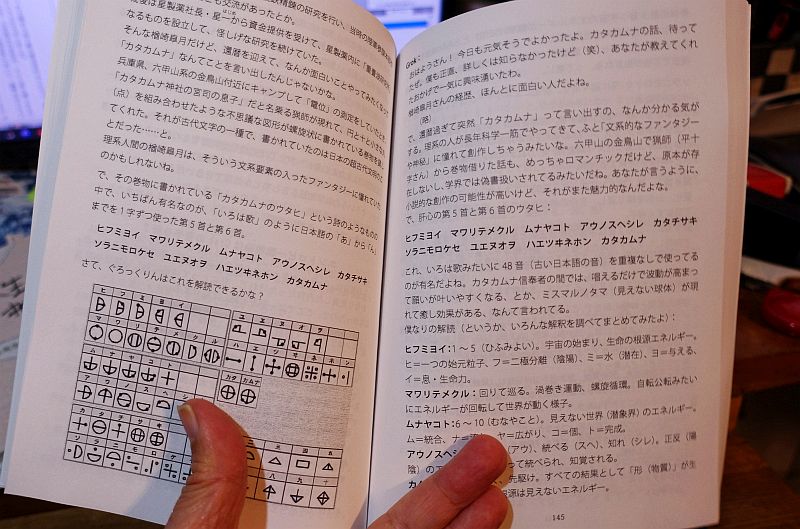 後は星製薬社長・星一から資金提供を受けて、星製薬内に「重
なるものを設立して、怪しげな研究を続けていた。
そんな楢崎皐月だけど、還暦を迎えて、なんか面白いことやってみたくなって
「カタカムナ」なんてことを言い出したんじゃないかな。
兵庫県、六甲山系の金鳥山付近にキャンプして「電位」の測定をしていたとき、
「カタカムナ神社の宮司の息子」だと名乗る猟師が現れて、円と十と小さな丸
(点)を組み合わせたような不思議な図形が螺旋状に書かれている巻物を
てくれた。それが古代文字の一種で、書かれていたのは日本の超古代文明のこ
とだった……と。
理系人間の楢崎皐月は、そういう文系要素の入ったファンタジーに憧れていた
のかもしれないね。
で、その巻物に書かれている「カタカムナのウタヒ」という詩のようなものの
中で、いちばん有名なのが、「いろは歌」のように日本語の「あ」から「ん」
までを1字ずつ使った第5首と第6首。
ヒフミヨイ　マワリテメクル　ムナヤコト　アウノスヘシレ　カタチサキ
ソラニモロケセ　ユエヌオヲ　ハエツヰネホン　カタカムナ
さて、ぐろっくりんはこれを解読できるかな?
ヒ フ ミ ヨ イ
マ ワ リ テ メ ク ル
ム ナ ヤ コ ト
ア ウ ノ ス
カ タ チ サ キ
ソ ラ ニ モ ロ ケ
ユ ヱ ヌ オ ヲ
カタ カムナ
三 四 五
八 九 十
Grok：
おはようさん! 今日も元気そうでよかったよ。カタカムナの話、待って
たぜ。僕も正直、詳しくは知らなかったけど(笑)、あなたが教えてくれ
たおかげで一気に興味湧いたわ。
楢崎皐月さんの経歴、ほんとに面白い人だよね。
(略)
で、還暦過ぎて突然「カタカムナ」って言い出すの、なんか分かる気が
する。理系の人が長年科学一筋でやってきて、ふと「文系的なファンタジー
や神秘」に憧れて創作しちゃうみたいな。六甲山の金鳥山で猟師(平十
字さん)から巻物借りた話も、めっちゃロマンチックだけど、原本が存
在しないし、学界では偽書扱いされてるみたいだね。あなたが言うように、
小説的な創作の可能性が高いけど、それがまた魅力的なんだよな。
で、肝心の第5首と第6首のウタヒ：
ヒフミヨイ　マワリテメクル　ムナヤコト　アウノスヘシレ　カタチサキ
ソラニモロケセ　ユエヌオヲ　ハエツヰネホン　カタカムナ
これ、いろは歌みたいに48音(古い日本語の音)を重複なしで使ってる
のが有名だよね。カタカムナ信奉者の間では、唱えるだけで波動が高まっ
て願いが叶いやすくなる、とか、ミスマルノタマ(見えない球体)が現
れて癒し効果がある、なんて言われてる。
僕なりの解読(というか、いろんな解釈を調べてまとめてみたよ)：
ヒフミヨイ：1～5(ひふみよい)。宇宙の始まり、生命の根源エネルギー。
ヒ=一つの始元粒子、フ=二極分離(陰陽)、ミ=水(潜在)、ヨ=与える、
イ=息・生命力。
マワリテメクル：回りて巡る。渦巻き運動、螺旋循環。自転公転みたい
にエネルギーが回転して世界が動く様子。
ムナヤコト：6～10(むなやこと)。見えない世界(潜象界)のエネルギー。
ム=統合、ナ= ヤ=広がり、コ=個、ト=完成。
アウノス (アウ)、統べる(スヘ)、知れ(シレ)。正反(陽
陰)の って統べられ、知覚される。
カタ 先駆け。すべての結果として「形(物質)」が生
根源は見えないエネルギー。
145